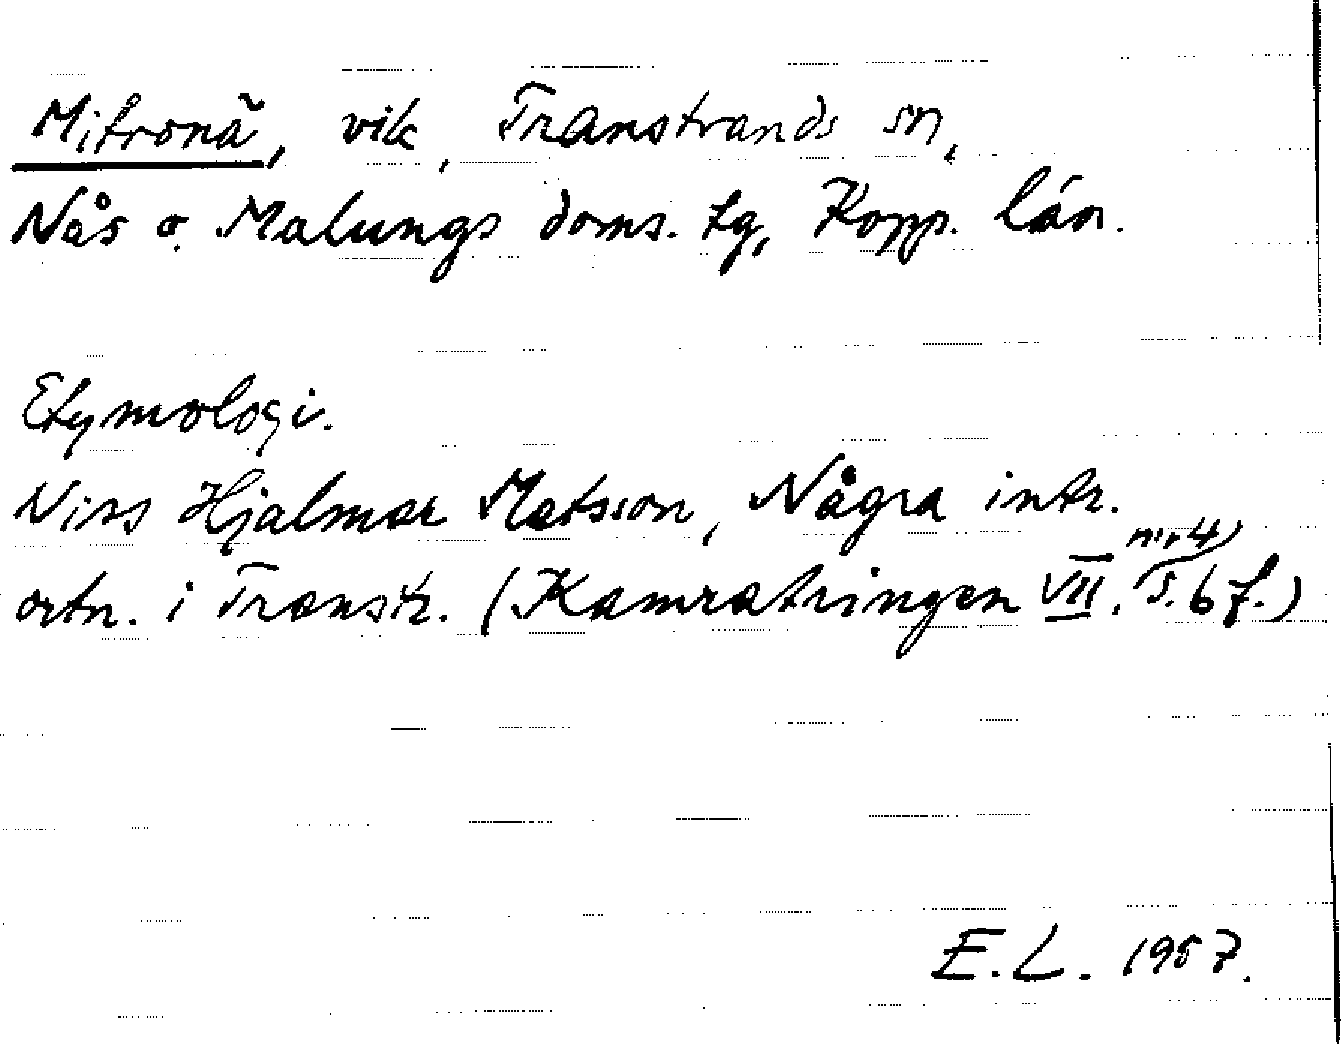 Mifronä, vik, Transtrands sn,
Nås o. Malungs doms. tg, Kopp. län.
Etymologi.
Niss Hjalmar Matsson, Några intr.
ortn. i Transtr. (Kamratringen VII, nr 4, s. 6 f.)
E.L. 1957.